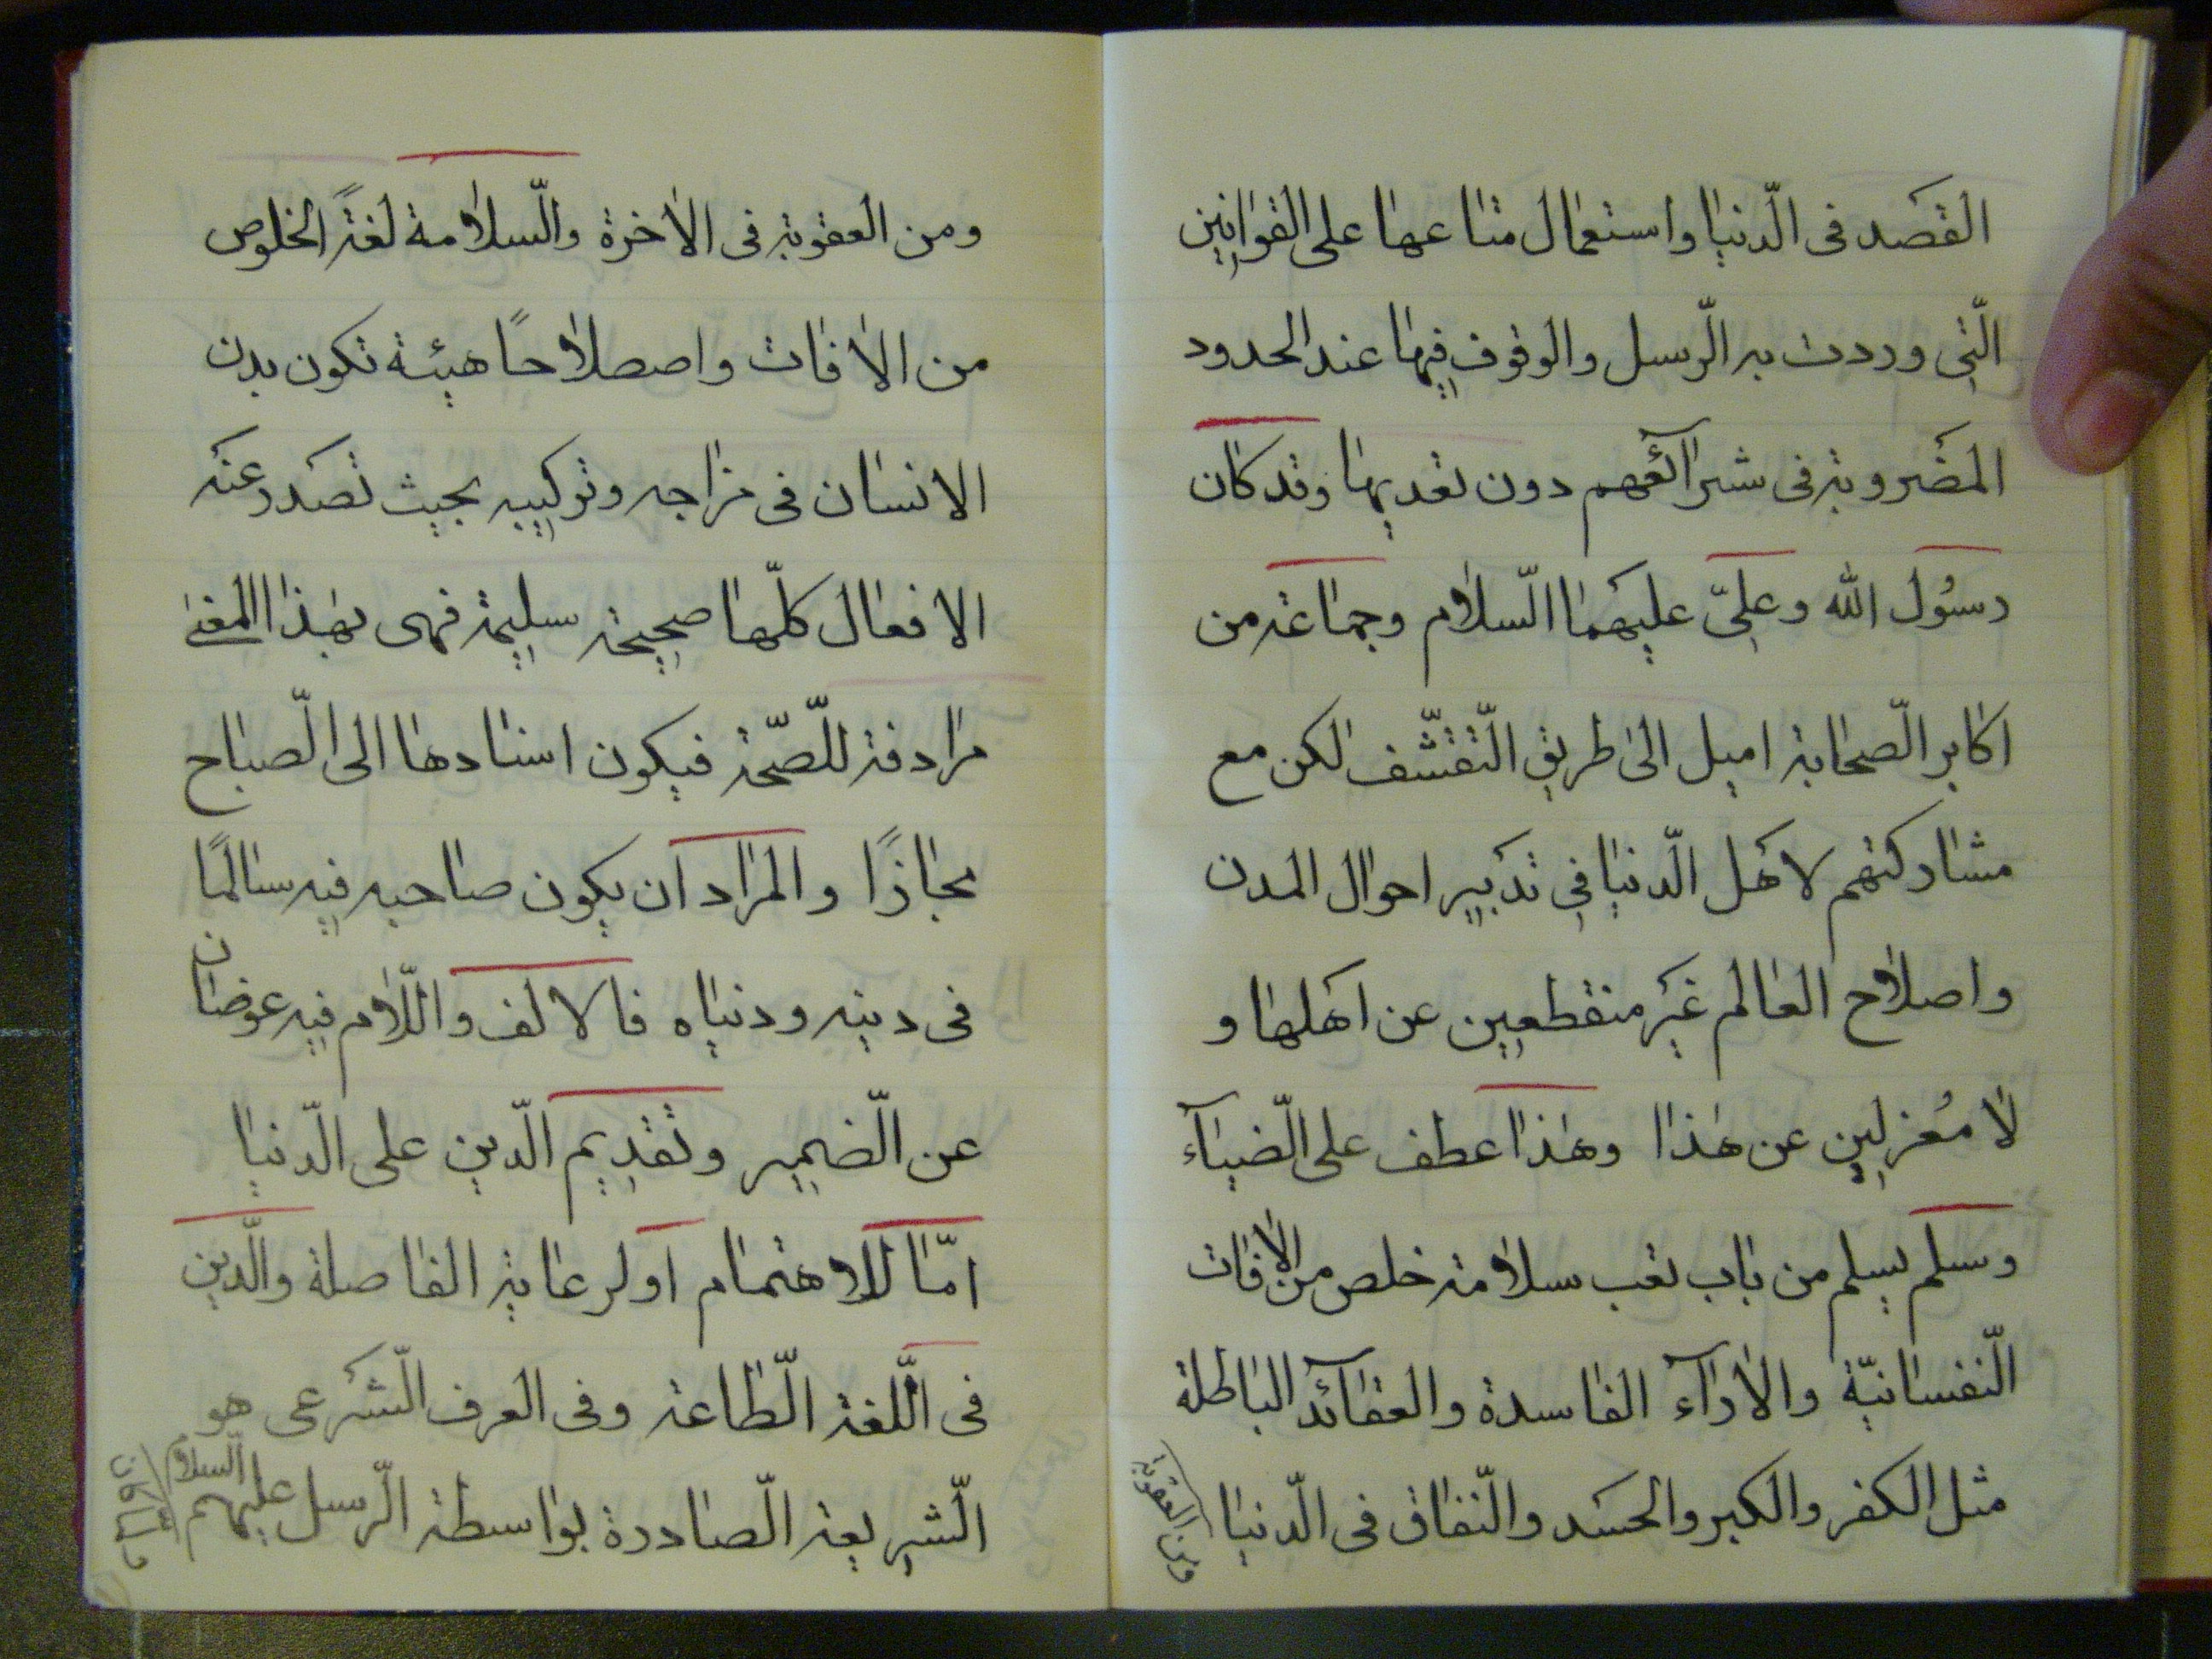 القصد فى الدّنيا واستعمال متاعها على القوانين
الّتى وردت به الرّسل والوقوف فيها عند الحدود
المضروبة فى شرآئعهم دون تعديها وقد كان
رسول الله وعلىّ عليهما السّلام وجماعة من
اكابر الصّحابة اميل الى طريق التّقشّف لكن مع
مشاركتهم لاهل الدّنيا فى تدبير احوال المدن
واصلاح العالم غير منقطعين عن اهلها و
لا معزلين عن هذا وهذا عطف على الضّيآء
وسلم يسلم من باب تعب سلامة خلص من الافات
النّفسانيّة والارآء الفاسدة والعقآئد الباطلة
مثل الكفر والكبر والحسد والنّفاق فى الدّنيا
ومن العقوبة
ومن العقوبة فى الاخرة والسّلامة لغةً الخلوص
من الافات واصطلاحًا هيئة تكون بدن
الانسان فى مزاجه وتركيبه بحيث تصدر عنه
الافعال كلّها صحيحة سليمة فهى بهذا المعنى
مرادفة للصّحّة فيكون اسنادها الى الصّباح
مجازًا والمراد ان يكون صاحبه فيه سالمًا
فى دينه ودنياه فالالف واللّام فيه عوضان
عن الضّمير وتقديم الدّين على الدّنيا
امّا للاهتمام او لرعاية الفاصلة والدّين
فى اللّغة الطّاعة وفى العرف الشّرعى هو
الشّريعة الصّادرة بواسطة الرّسل عليهم السلام